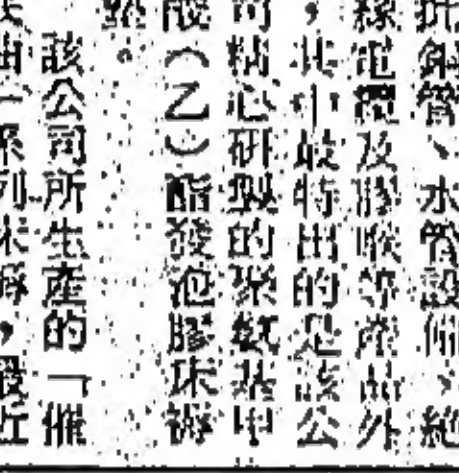 折鋼管、水管設備、絕
緣電纜及膠喉等產品外
，其中最特出的是該公
司精心研製的聚氨基甲
酸（乙）酯發泡膠床褥
。
該公司所生產的「催
一系列床褥，最近